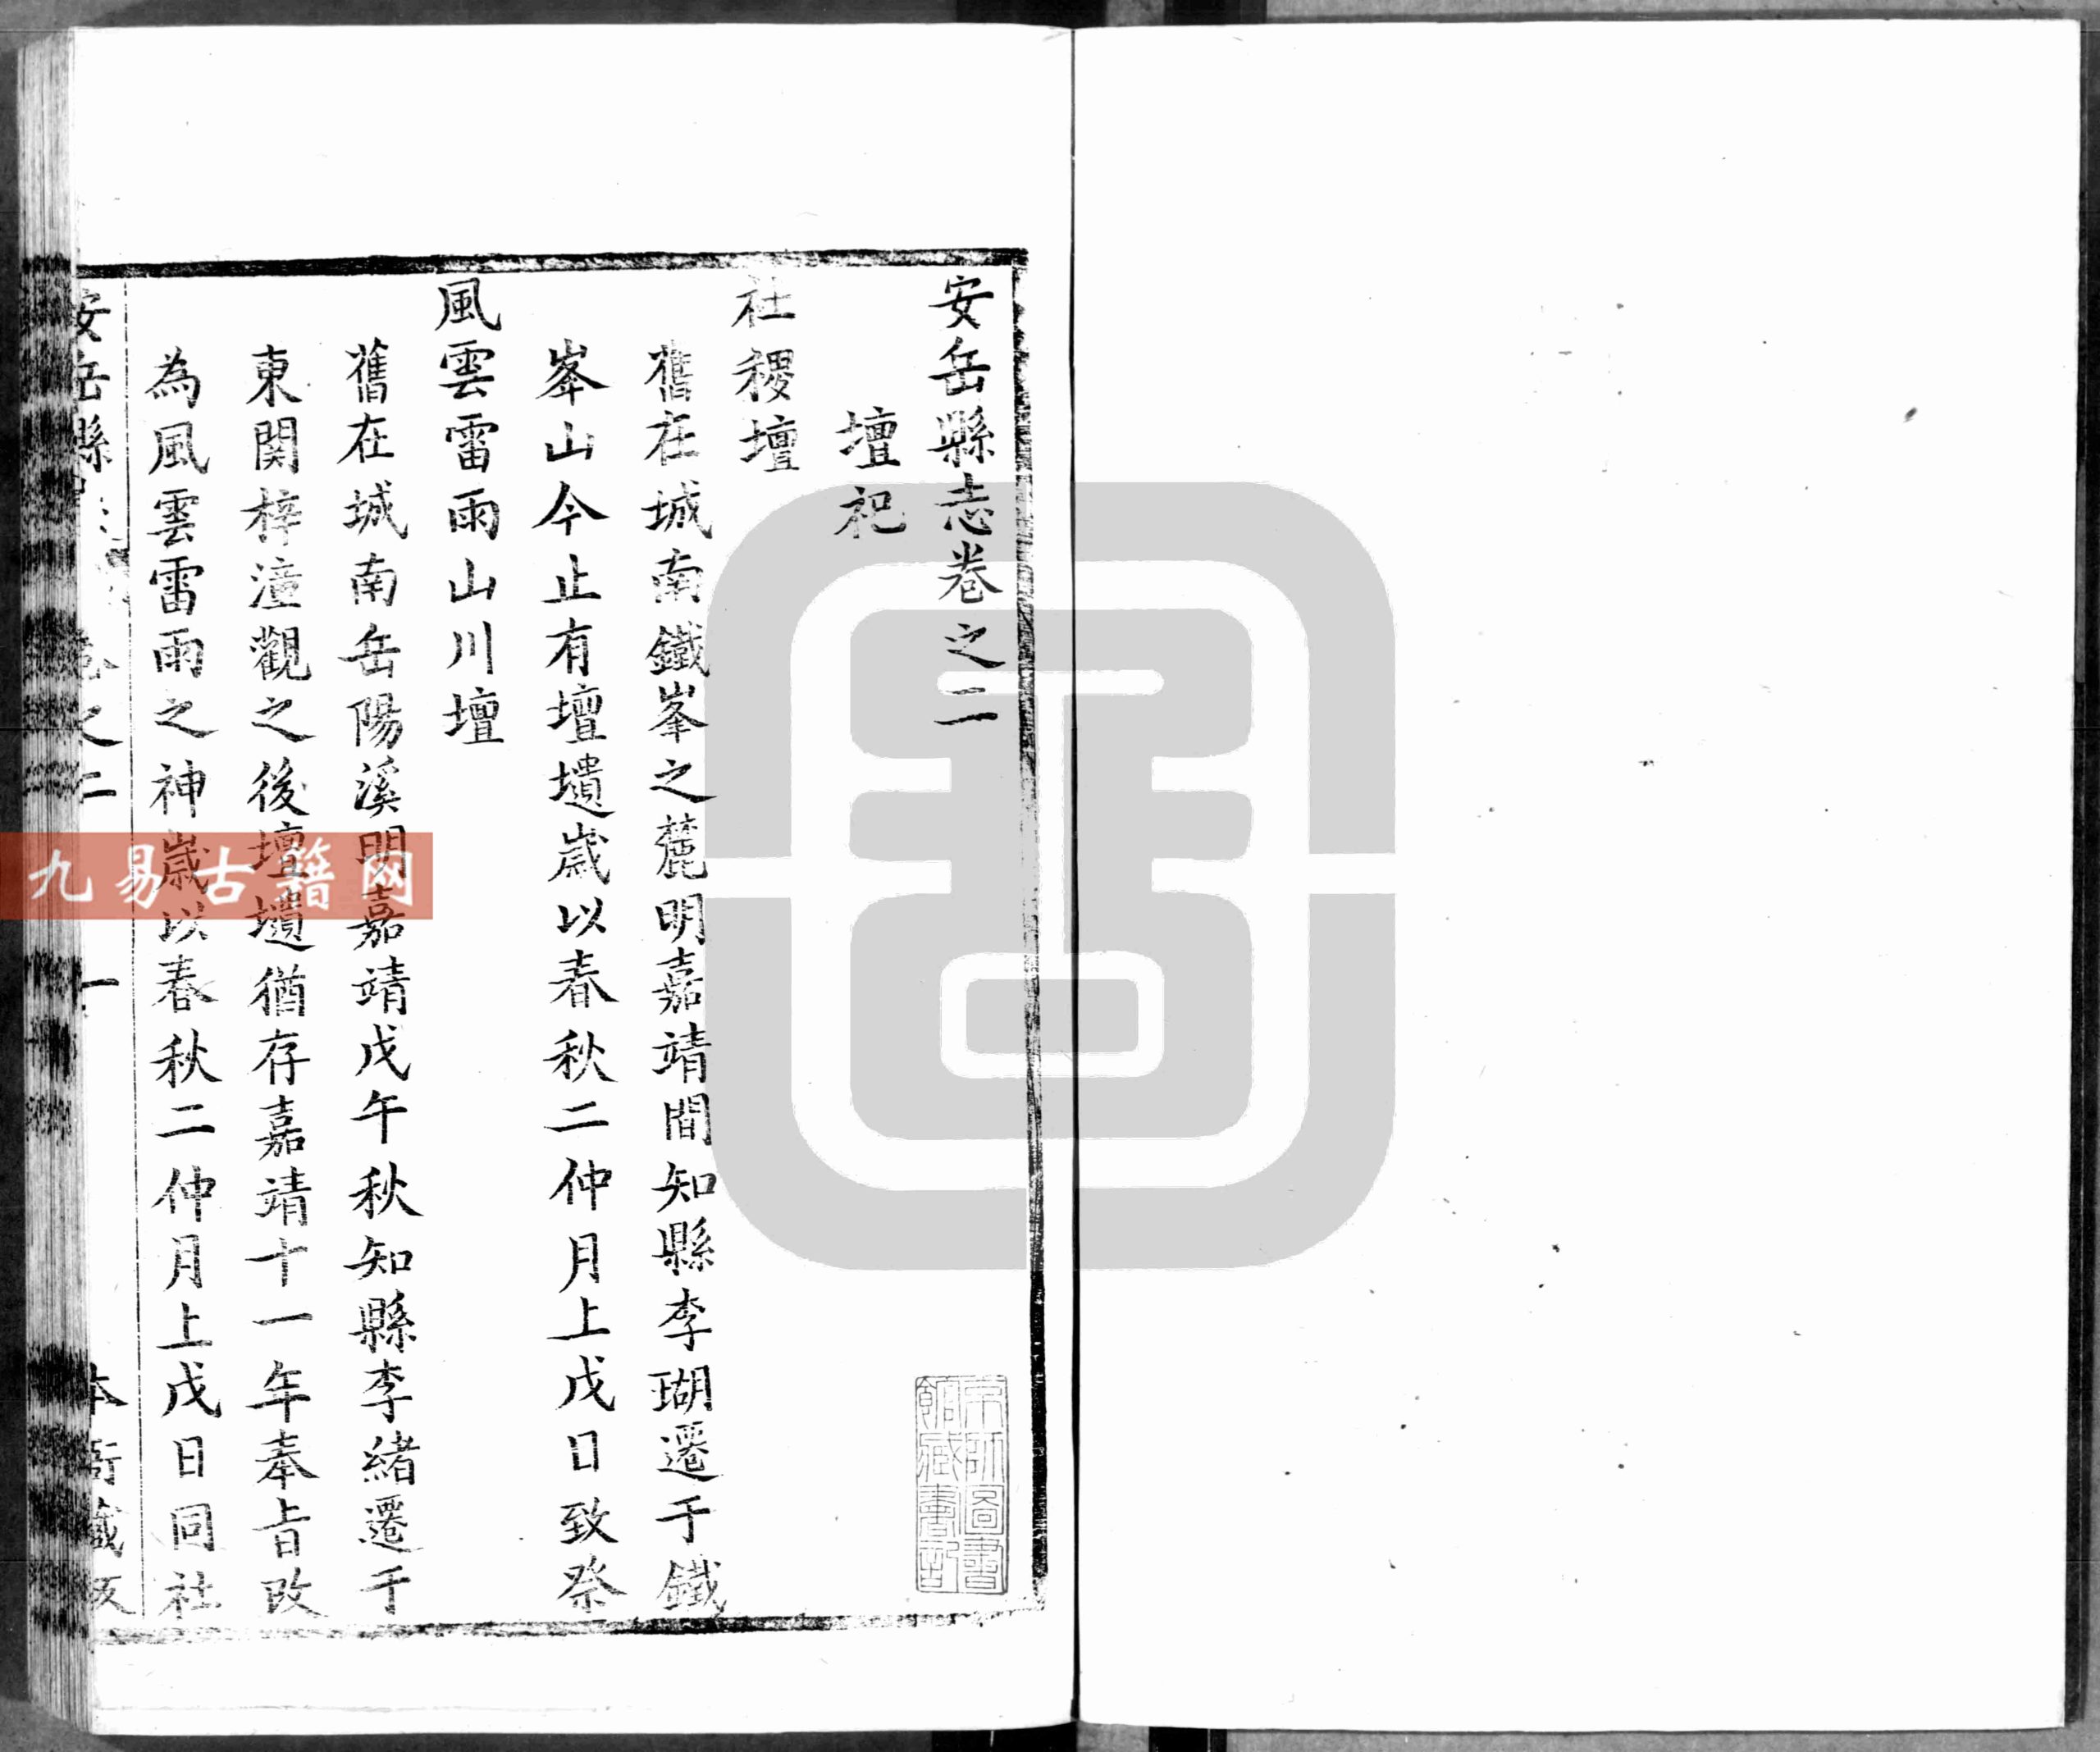 安岳縣志卷之二
壇祀
社稷壇
舊在城南鐵峯之麓明嘉靖間知縣李瑚遷于鐵
峯山今止有壇壝歲以春秋二仲月上戊日致祭
風雲雷雨山川壇
舊在城南岳陽溪明嘉靖戊午秋知縣李緒遷于
東関梓潼觀之後壇壝猶存嘉靖十一年奉旨改
為風雲雷雨之神歲以春秋二仲月上戊日同社
安岳縣志 卷之二 一 本衙藏板
京師圖書
館藏書記
九易古籍网